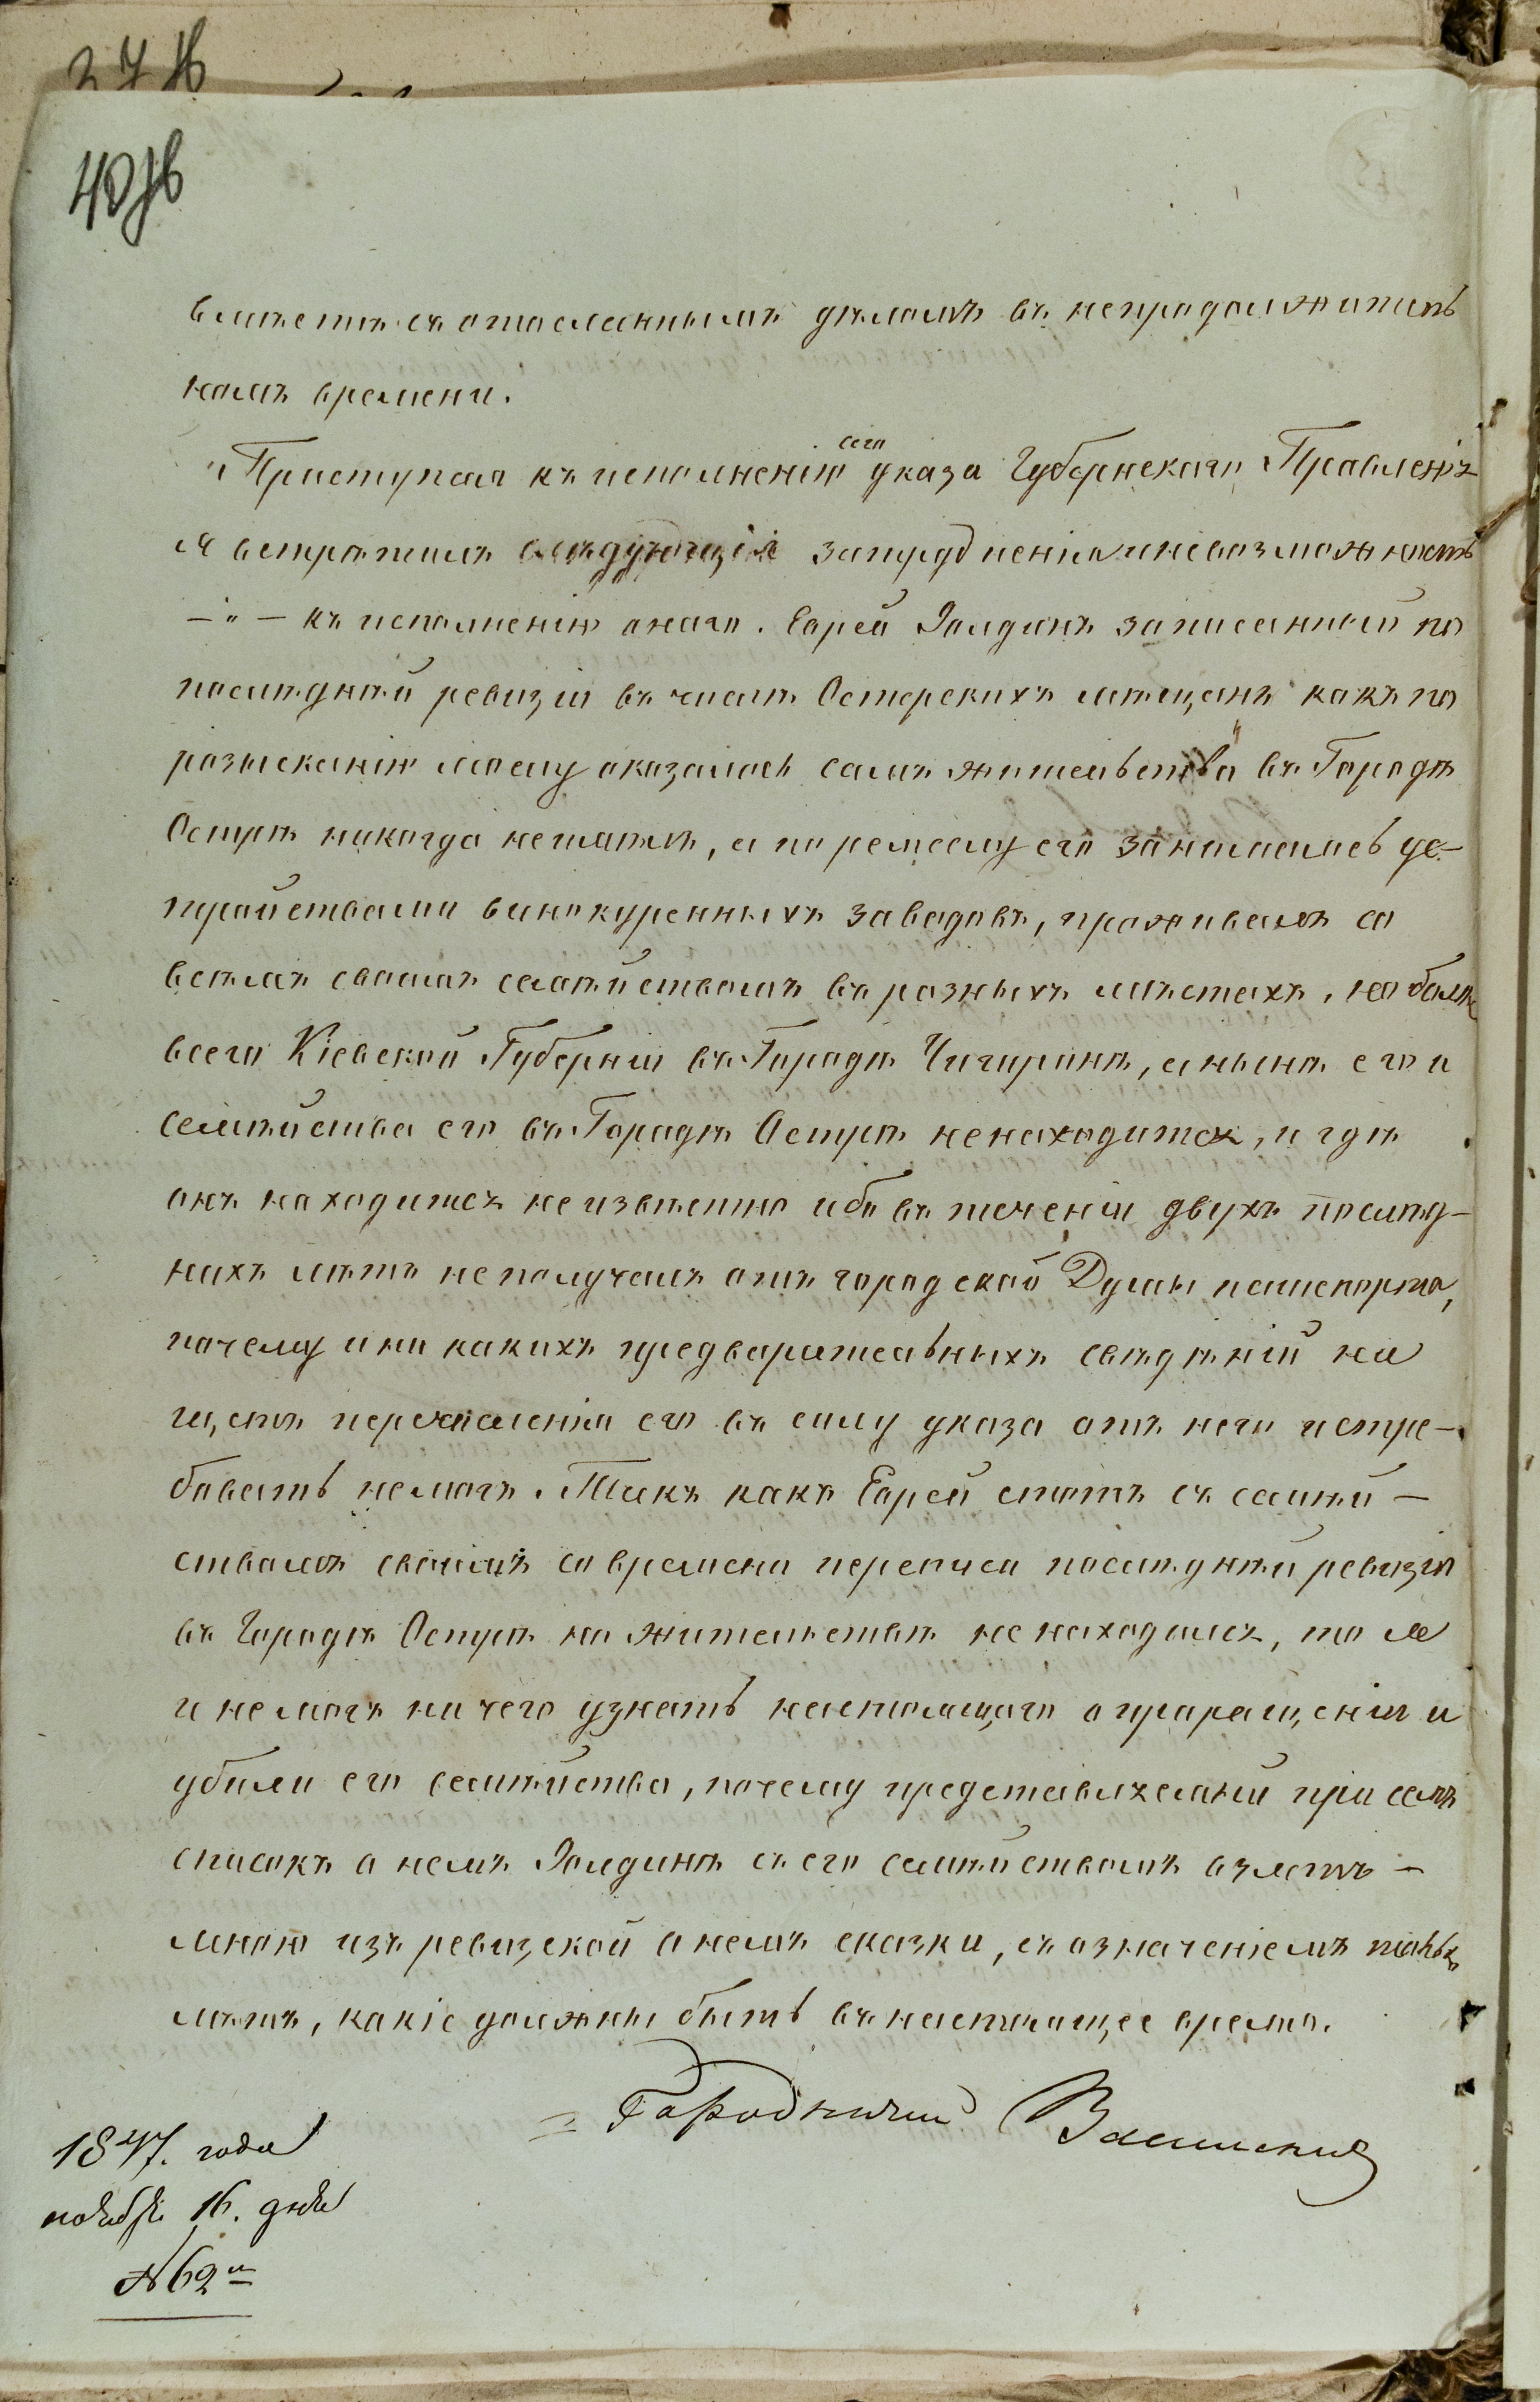 27 об
40 об
вмѣстѣ съ отосланнымъ дѣломъ въ непродолжитель
номъ времени.
Приступая къ исполненію сего указа Губернскаго Правленія
я встрѣтилъ слѣдующія затрудненія и невозможность
къ исполненію онаго. Еврей Золдинъ записанный по
послѣдней ревизіи въ число Остерскихъ мѣщанъ какъ по
розысканію моему оказалось самъ жительства въ Городѣ
Острѣ никогда неимѣлъ, а по ремеслу его занимаясь ус-
тройствами винокуренныхъ заводовъ, проживалъ со
всѣмъ своимъ семѣйствомъ въ разныхъ мѣстахъ, но болѣе
всего Кіевской Губерніи въ Городѣ Чигиринѣ, а нынѣ его и
семѣйства его въ Городѣ Острѣ ненаходится, и гдѣ
онъ находится неизвѣстно ибо въ теченіи двухъ послѣд-
нихъ лѣтъ неполучалъ отъ городской Думы пашпорта,
почему и ни какихъ предварительныхъ свѣдѣній на
щетъ перечисленія его въ силу указа отъ него истре-
бовать немогъ. Такъ какъ Еврей етотъ съ семѣй-
ствомъ своимъ со времени переписи послѣдней ревизіи
въ Городѣ Острѣ на жительствѣ ненаходился, то я
и немогъ ничего узнать настоящаго о приращеніи и
убыли его семѣйства, почему представляемый при семъ
списокъ о немъ Золдинѣ съ его семѣйствомъ взятъ
мною изъ ревизской о немъ сказки, съ означеніемъ
лѣтъ, какіе должны быть въ настоящее время.
Городничій
1847. года
ноября 16. дня
№ 62